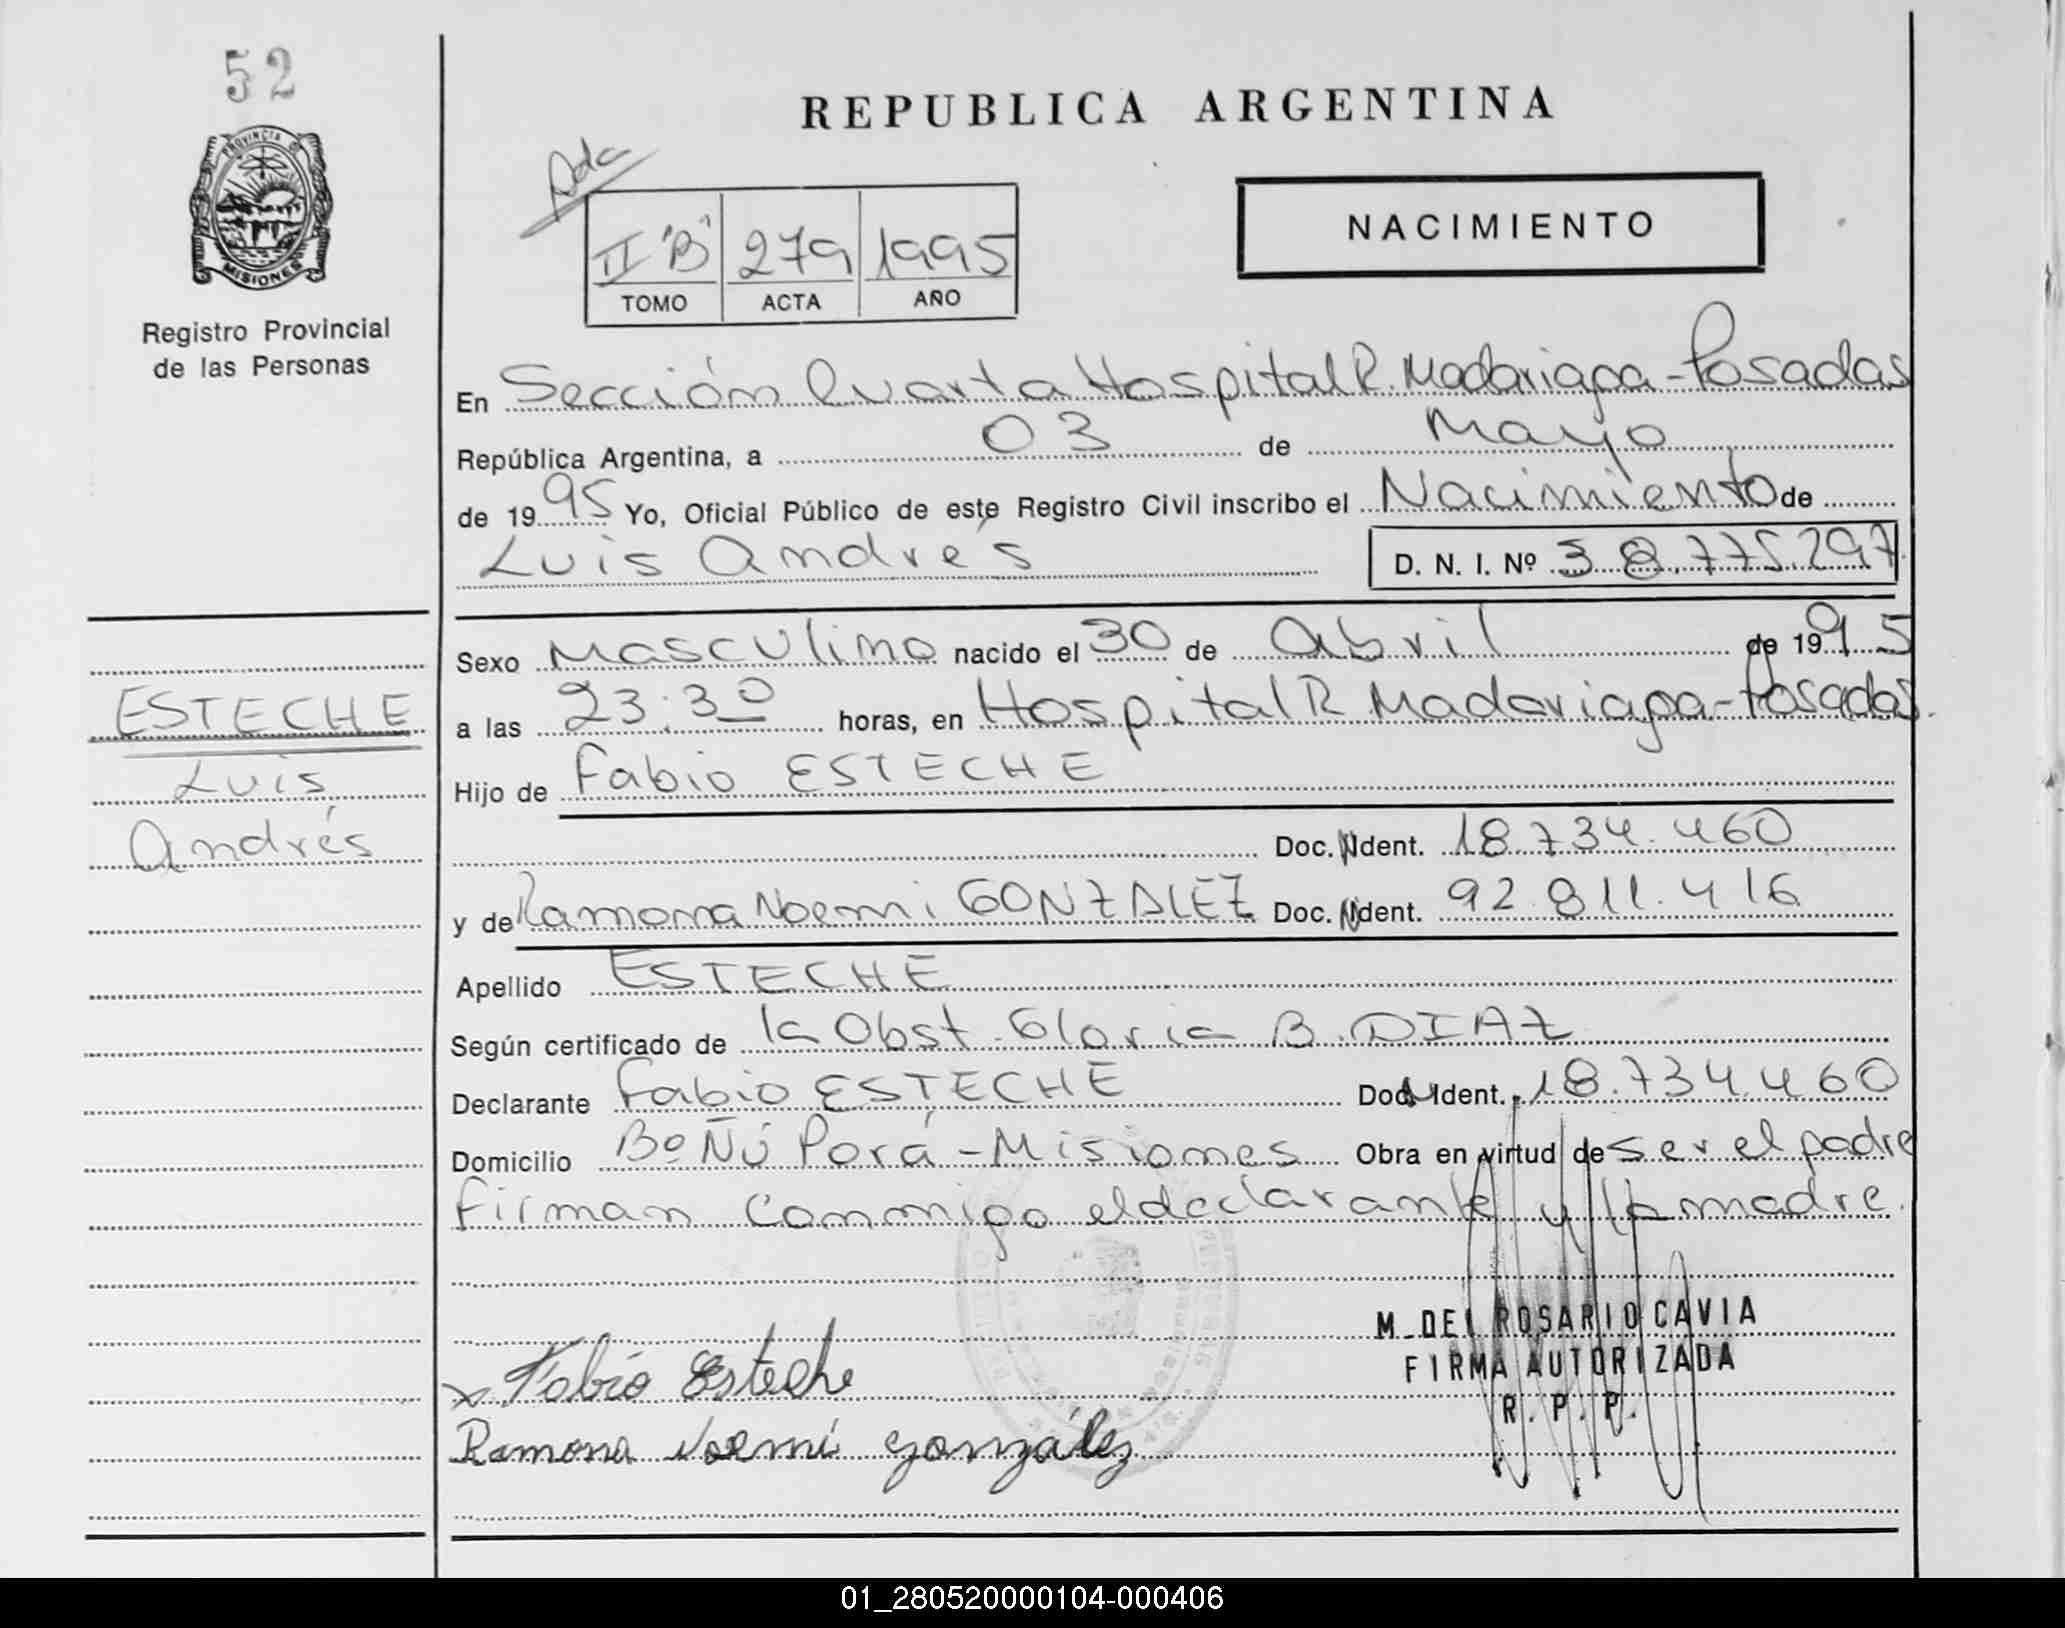 52
REPUBLICA ARGENTINA
PROVINCIA DE
MISIONES
Registro Provincial
de las Personas
II "B" 279 1995
TOMO ACTA AÑO
NACIMIENTO
En Sección Cuarta Hospital R. Madariaga - Posadas
República Argentina, a 03 de Mayo
de 1995 Yo, Oficial Público de este Registro Civil inscribo el Nacimiento de
Luis Andrés D. N. I. Nº 38.775.297
Sexo Masculino nacido el 30 de Abril de 1995
ESTECHE
Luis
Andrés
a las 23:30 horas, en Hospital R Madariaga - Posadas.
Hijo de Fabio ESTECHE
Doc. N Ident. 18.734.460
y de Ramona Noemi GONZALEZ Doc. N Ident. 92.811.416
Apellido ESTECHE
Según certificado de la Obst. Gloria B. DIAZ
Declarante Fabio ESTECHE Doc. N Ident. 18.734.460
Domicilio Bº Ñú Porá - Misiones Obra en virtud de ser el padre
Firman Conmigo el declarante y la madre.
M. DEL ROSARIO CAVIA
FIRMA AUTORIZADA
R. P. P.
Fabio Esteche
Ramona Noemi González
01_280520000104-000406